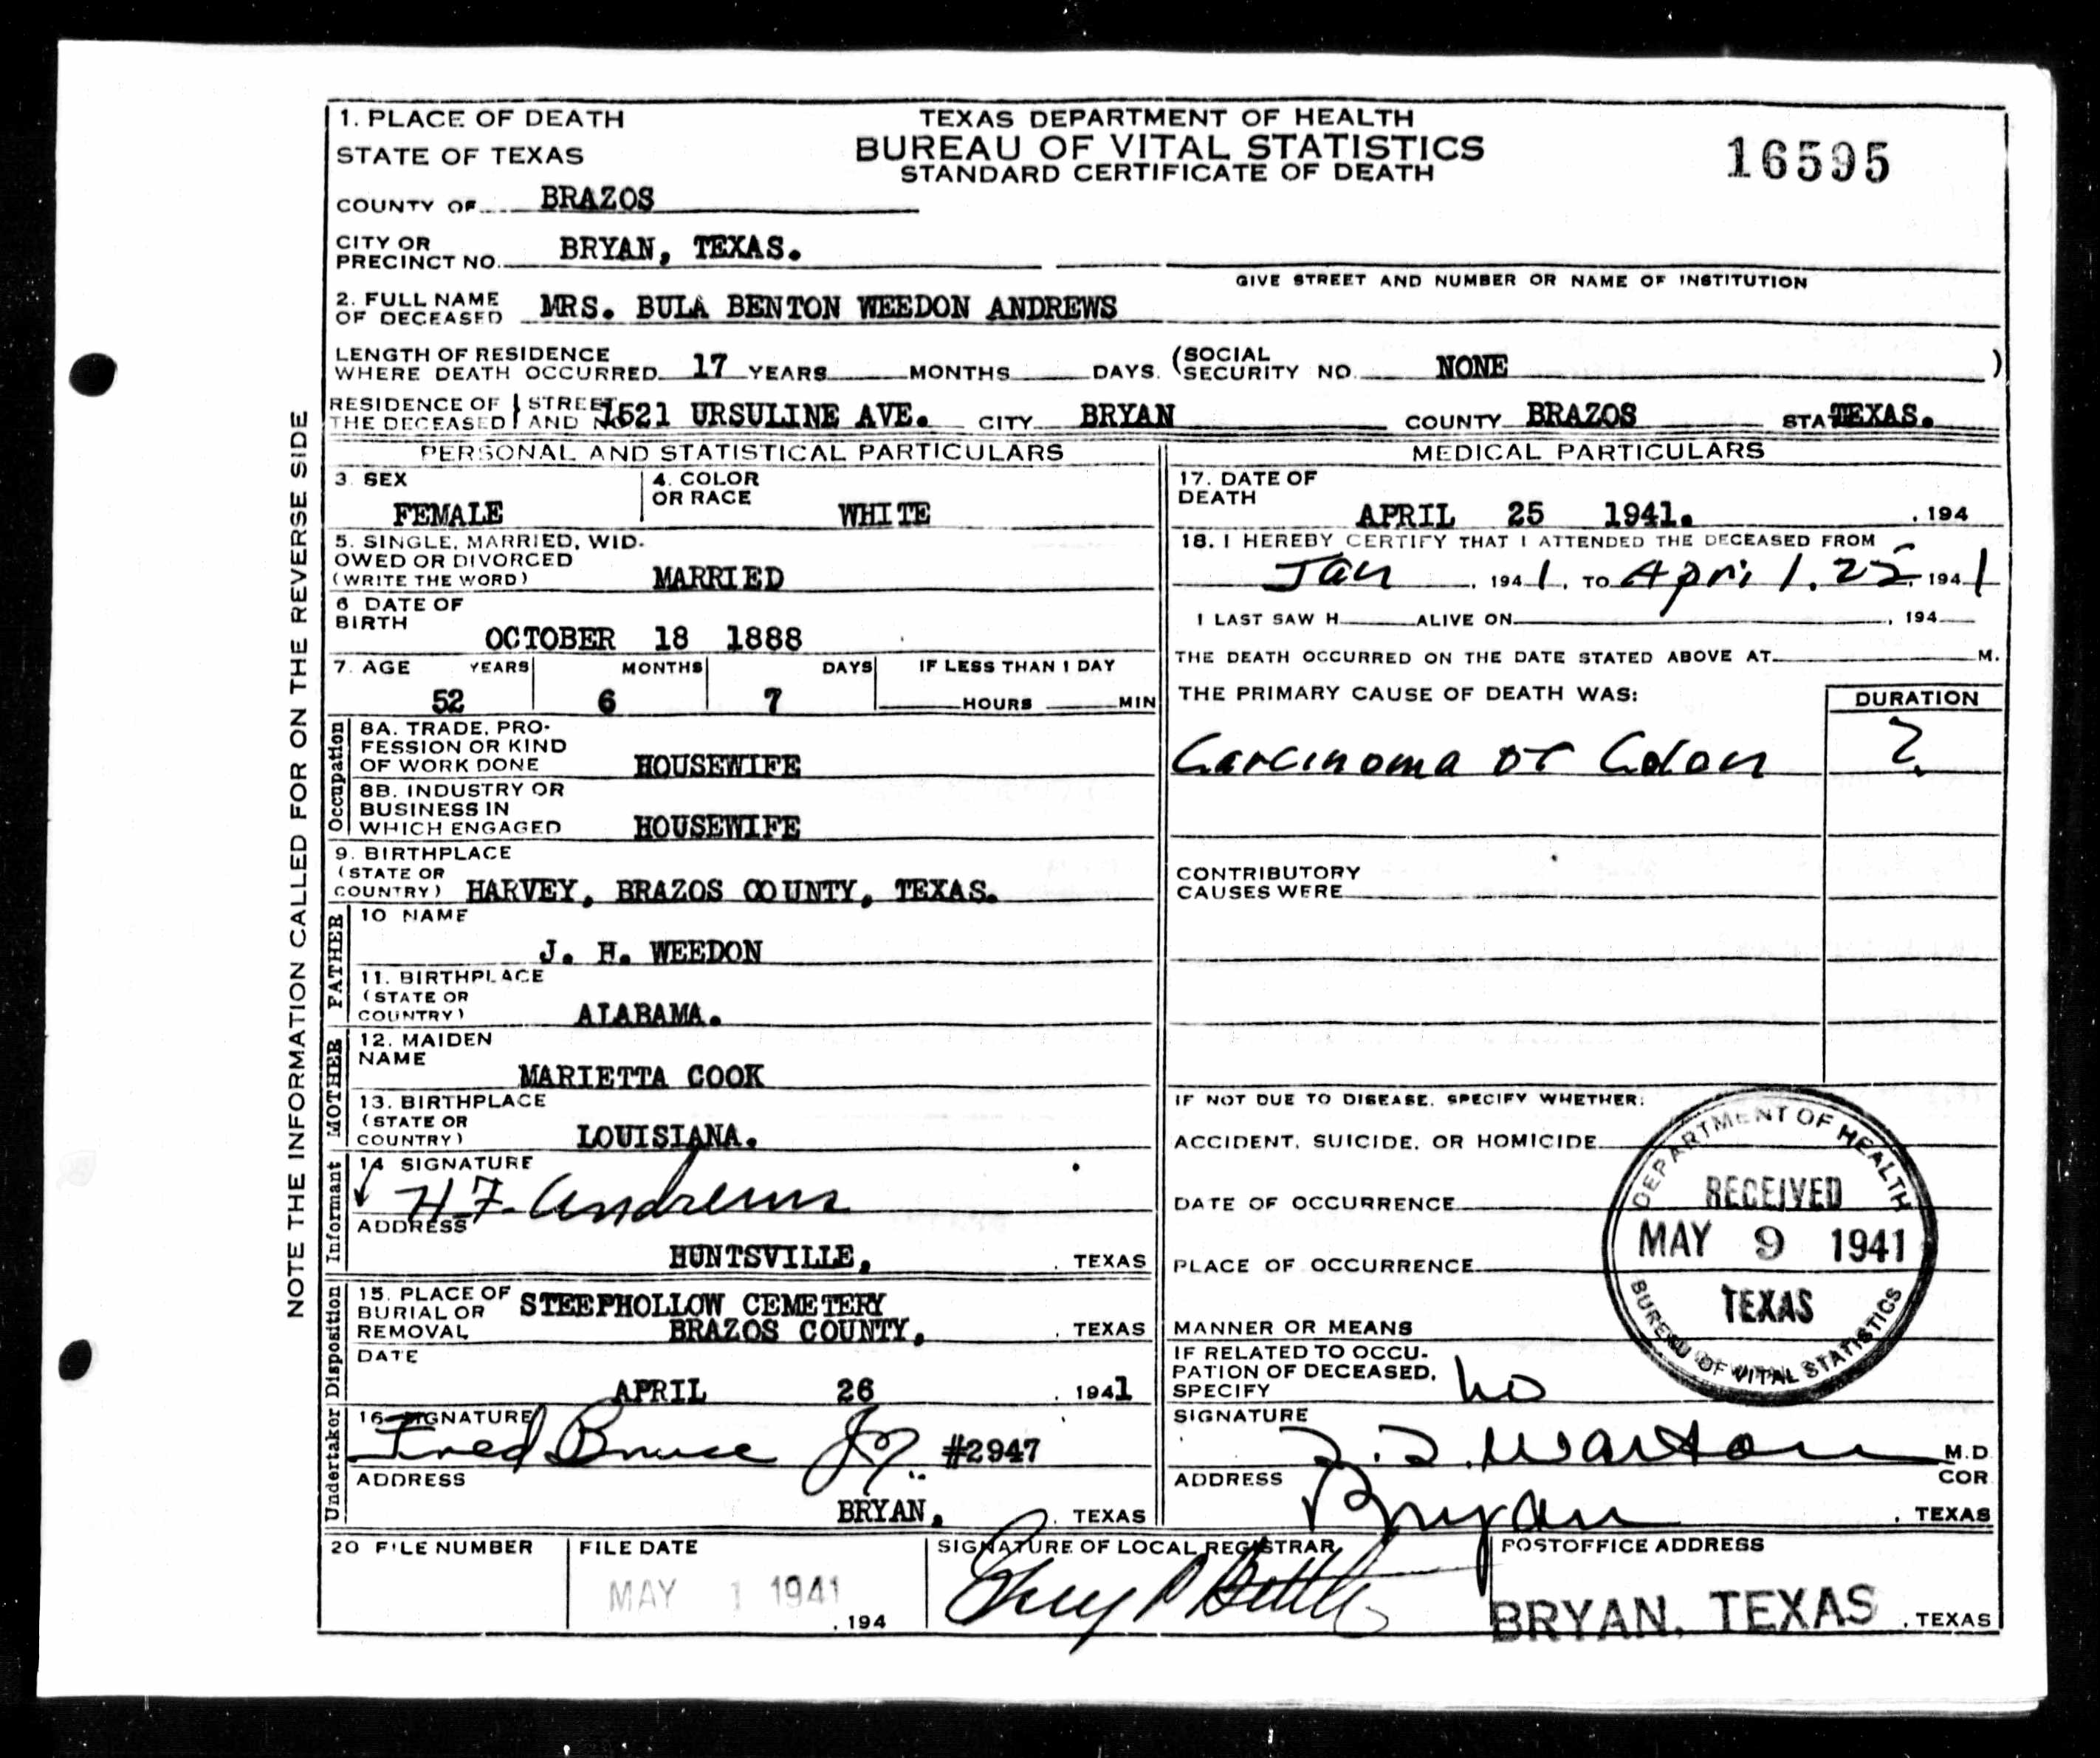 NOTE THE INFORMATION CALLED FOR ON THE REVERSE SIDE
1. PLACE OF DEATH
STATE OF TEXAS
COUNTY OF BRAZOS
CITY OR
PRECINCT NO. BRYAN, TEXAS.
TEXAS DEPARTMENT OF HEALTH
BUREAU OF VITAL STATISTICS
STANDARD CERTIFICATE OF DEATH
16595
GIVE STREET AND NUMBER OR NAME OF INSTITUTION
2. FULL NAME
OF DECEASED MRS. BULA BENTON WEEDON ANDREWS
LENGTH OF RESIDENCE
WHERE DEATH OCCURRED 17 YEARS MONTHS DAYS. (SOCIAL
SECURITY NO. NONE )
RESIDENCE OF } STREET
THE DECEASED } AND NO. 1521 URSULINE AVE. CITY BRYAN COUNTY BRAZOS STA TEXAS.
PERSONAL AND STATISTICAL PARTICULARS
3. SEX
FEMALE
4. COLOR
OR RACE
WHITE
5. SINGLE, MARRIED, WID-
OWED OR DIVORCED
(WRITE THE WORD) MARRIED
6 DATE OF
BIRTH
OCTOBER 18 1888
7. AGE YEARS MONTHS DAYS IF LESS THAN 1 DAY
52 6 7 HOURS MIN
Occupation
8A. TRADE, PRO-
FESSION OR KIND
OF WORK DONE HOUSEWIFE
8B. INDUSTRY OR
BUSINESS IN
WHICH ENGAGED HOUSEWIFE
9. BIRTHPLACE
(STATE OR
COUNTRY) HARVEY, BRAZOS COUNTY, TEXAS.
FATHER
10 NAME
J. H. WEEDON
11. BIRTHPLACE
(STATE OR
COUNTRY) ALABAMA.
MOTHER
12. MAIDEN
NAME
MARIETTA COOK
13. BIRTHPLACE
(STATE OR
COUNTRY) LOUISIANA.
Informant
14 SIGNATURE
H F. Andrews
ADDRESS
HUNTSVILLE, , TEXAS
Disposition
15. PLACE OF
BURIAL OR
REMOVAL
STEEPHOLLOW CEMETERY
BRAZOS COUNTY, , TEXAS
DATE
APRIL 26 , 1941
Undertaker
16 SIGNATURE
Fred Bruce Jr. #2947
ADDRESS
BRYAN, , TEXAS
MEDICAL PARTICULARS
17. DATE OF
DEATH
APRIL 25 1941. , 194
18. I HEREBY CERTIFY THAT I ATTENDED THE DECEASED FROM
Jan , 1941, TO April 25, 1941
I LAST SAW H ALIVE ON , 194
THE DEATH OCCURRED ON THE DATE STATED ABOVE AT M.
THE PRIMARY CAUSE OF DEATH WAS: DURATION
Carcinoma of Colon ?
CONTRIBUTORY
CAUSES WERE
IF NOT DUE TO DISEASE, SPECIFY WHETHER:
ACCIDENT, SUICIDE, OR HOMICIDE
DATE OF OCCURRENCE
PLACE OF OCCURRENCE
MANNER OR MEANS
IF RELATED TO OCCU-
PATION OF DECEASED,
SPECIFY no
DEPARTMENT OF HEALTH
RECEIVED
MAY 9 1941
TEXAS
BUREAU OF VITAL STATISTICS
SIGNATURE
Walton M.D.
COR
ADDRESS
Bryan , TEXAS
20 FILE NUMBER
FILE DATE
MAY 1 1941
, 194
SIGNATURE OF LOCAL REGISTRAR
POSTOFFICE ADDRESS
BRYAN, TEXAS , TEXAS